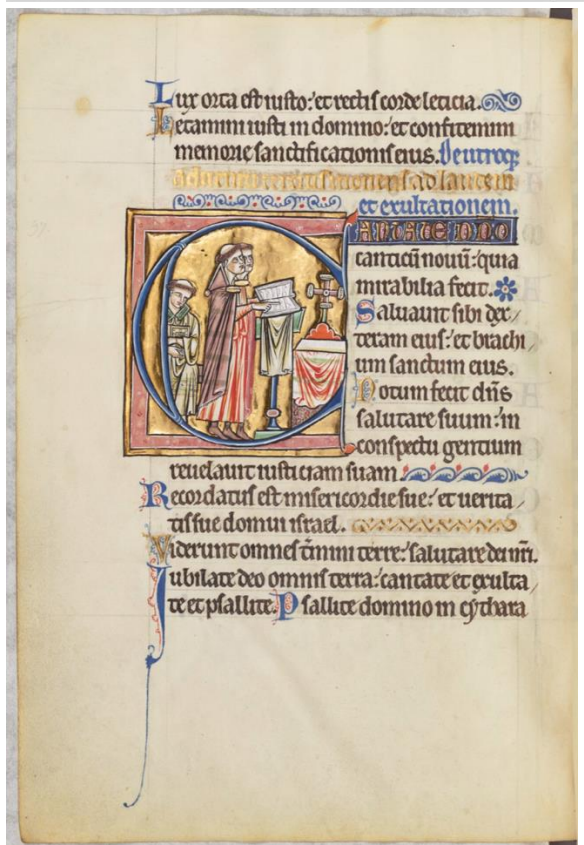 Lux orta est iusto: et rectis corde leticia.
Letamini iusti in domino: et confitemini
memorie sanctificationis eius. De utroq;
adventu ad laudem
et exultationem.
CANTATE DNO
canticū nouū: quia
mirabilia fecit.
Saluauit sibi dex
teram eius: et brachi
um sanctum eius.
Notum fecit dn̄s
salutare suum: in
conspectu gentium
reuelauit iusticiam suam.
Recordatus est misericordie sue: et uerita
tis sue domui israel.
Viderunt omnes t̄mini terre: salutare dei nr̄i.
Iubilate deo omnis terra: cantate et exulta
te et psallite. Psallite domino in cythara